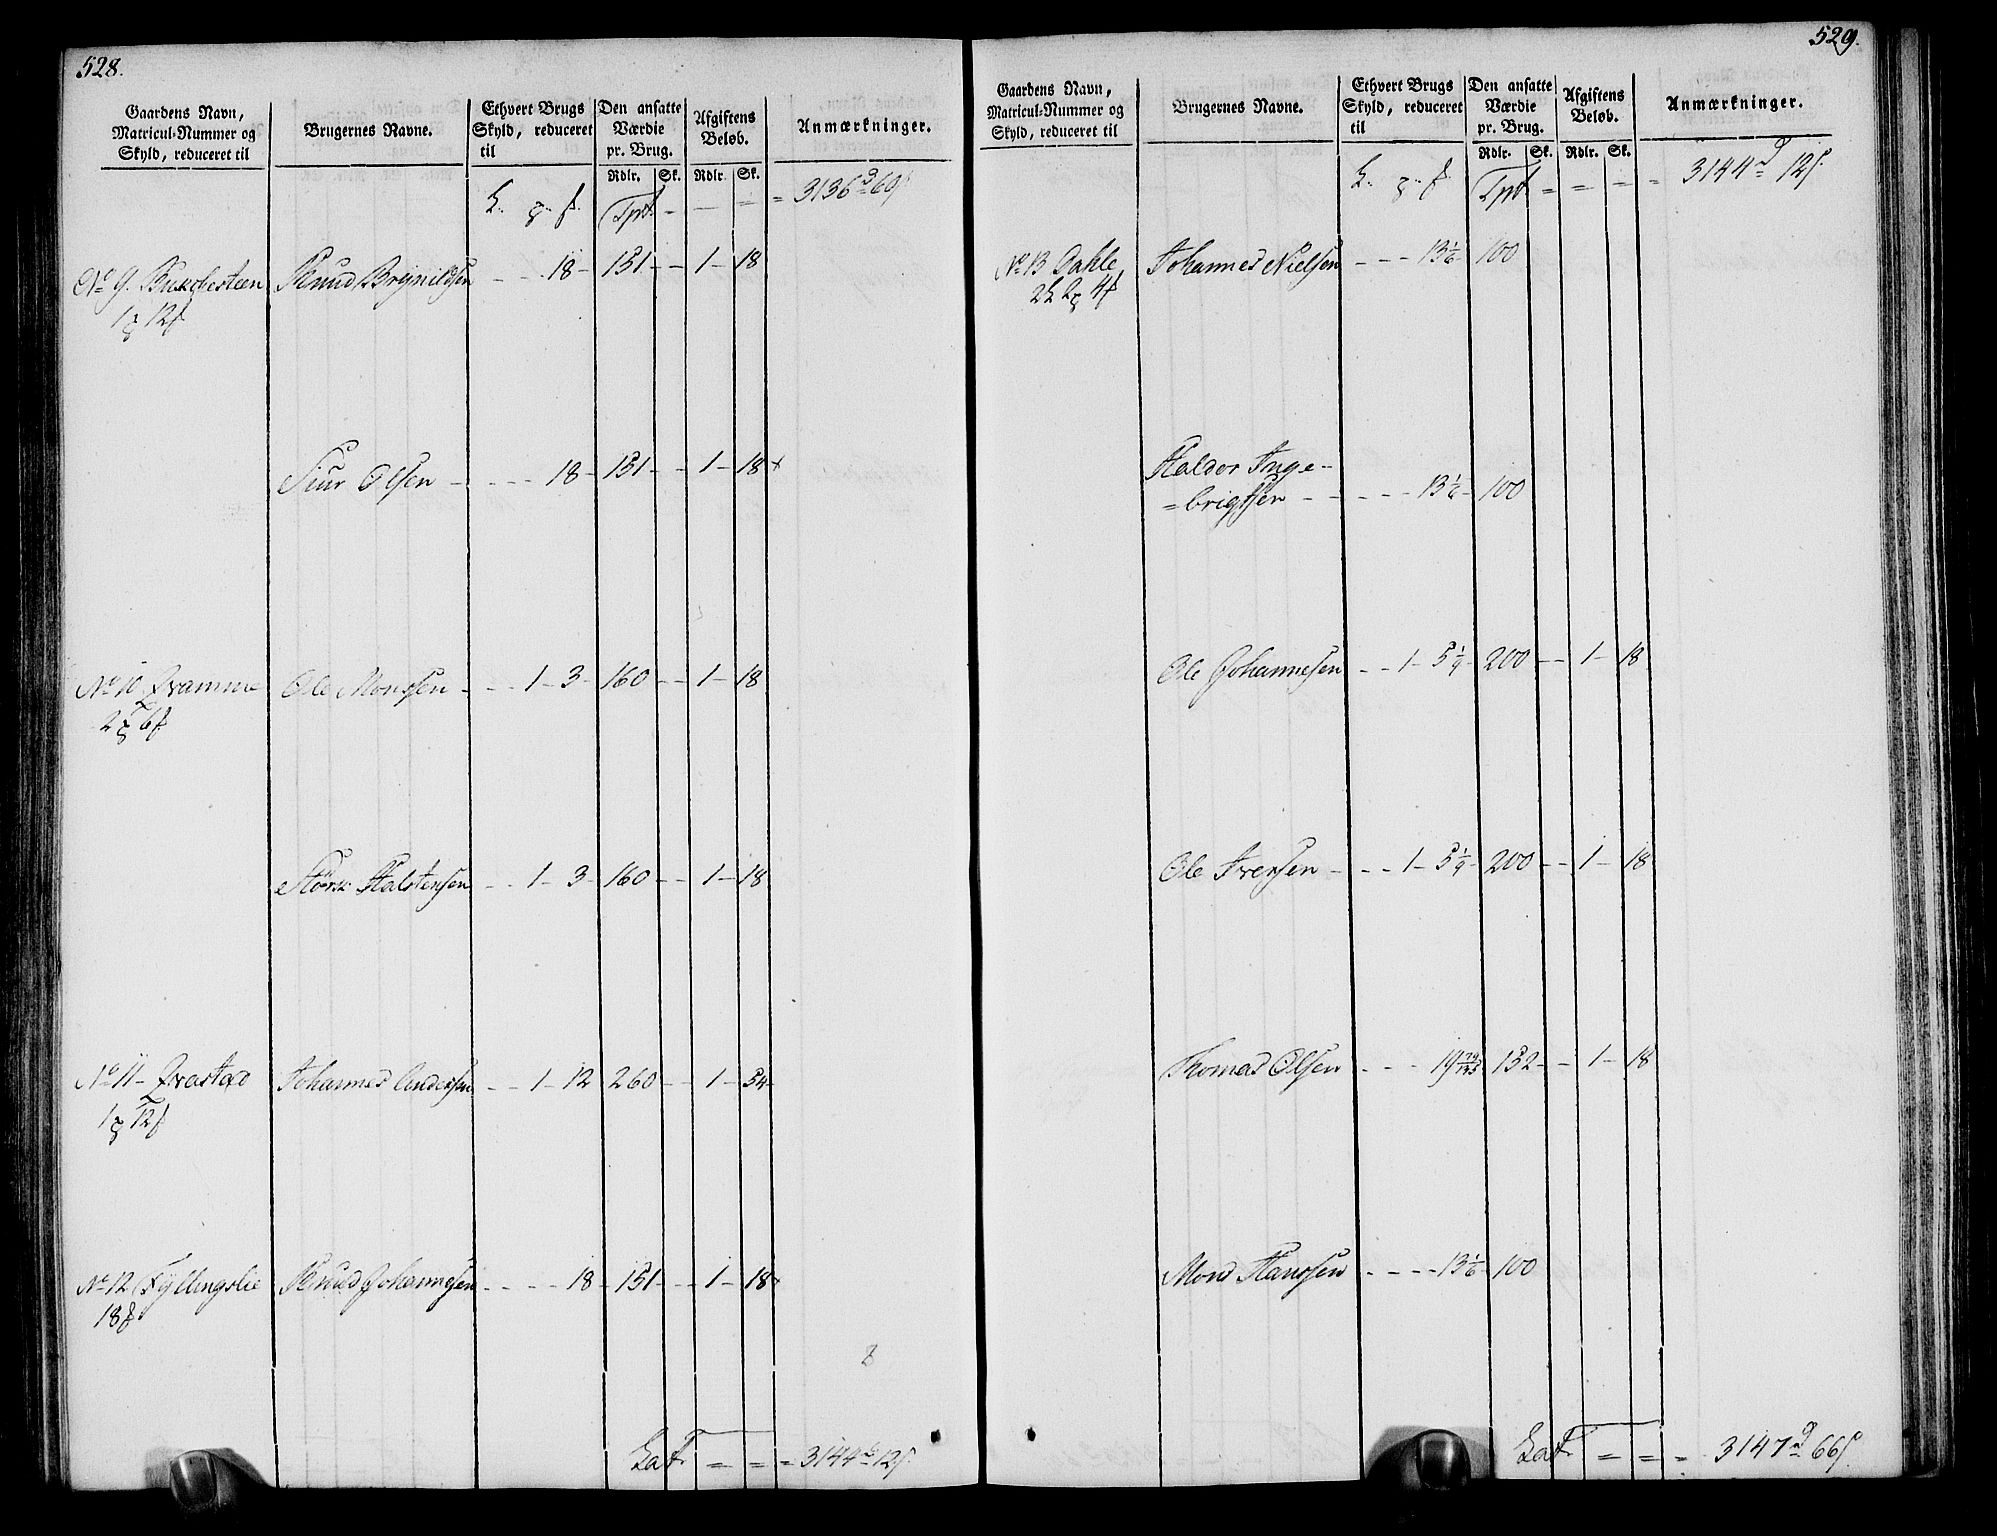 528.
Gaardens Navn,
Matricul-Nummer og
Skyld, reduceret til
Brugernes Navne.
Ethvert Brugs
Skyld, reduceret
til
Den ansatte
Værdie
pr. Brug.
Afgiftens
Beløb.
Anmærkninger.
Rdlr. Sk. Rdlr. Sk.
Tprt - - = = 3136 60
No 9. Knud Brynildsen - - - 18 - 151 - - 1 - 18
1 12
Siur Olsen - - - - 18 - 151 - - 1 - 18
No 10 Framme Ole Monssen - - - 1 - 3 - 160 - - 1 - 18
2 6
Størk Halstensen - - 1 - 3 - 160 - - 1 - 18
No 11 - Johannes Andersen - - 1 - 12 260 - - 1 - 54
1 12
No 12 Fyllingslie Knud Johannesen - - - - 18 - 151 - - 1 - 18
18
Lat = = = 3144 12
529.
Gaardens Navn,
Matricul-Nummer og
Skyld, reduceret til
Brugernes Navne.
Ethvert Brugs
Skyld, reduceret
til
Den ansatte
Værdie
pr. Brug.
Afgiftens
Beløb.
Anmærkninger.
Rdlr. Sk. Rdlr. Sk.
Tprt = = = = 3144 12
No 13 Dahle Johannes Nielsen - - - 13 1/6 100
2 2 4
Haldor Inge-
=brigtsen - - - - - 13 1/6 - 100
Ole Johannesen - - 1 - 5 1/9 - 200 - - 1 - 18
Ole Iversen - - - 1 - 5 1/9 - 200 - - 1 - 18
Thomas Olsen - - - 19 152 - - 1 - 18
Mons Hanssen - - - - 13 1/6 - 100
Lat = = = 3147 66